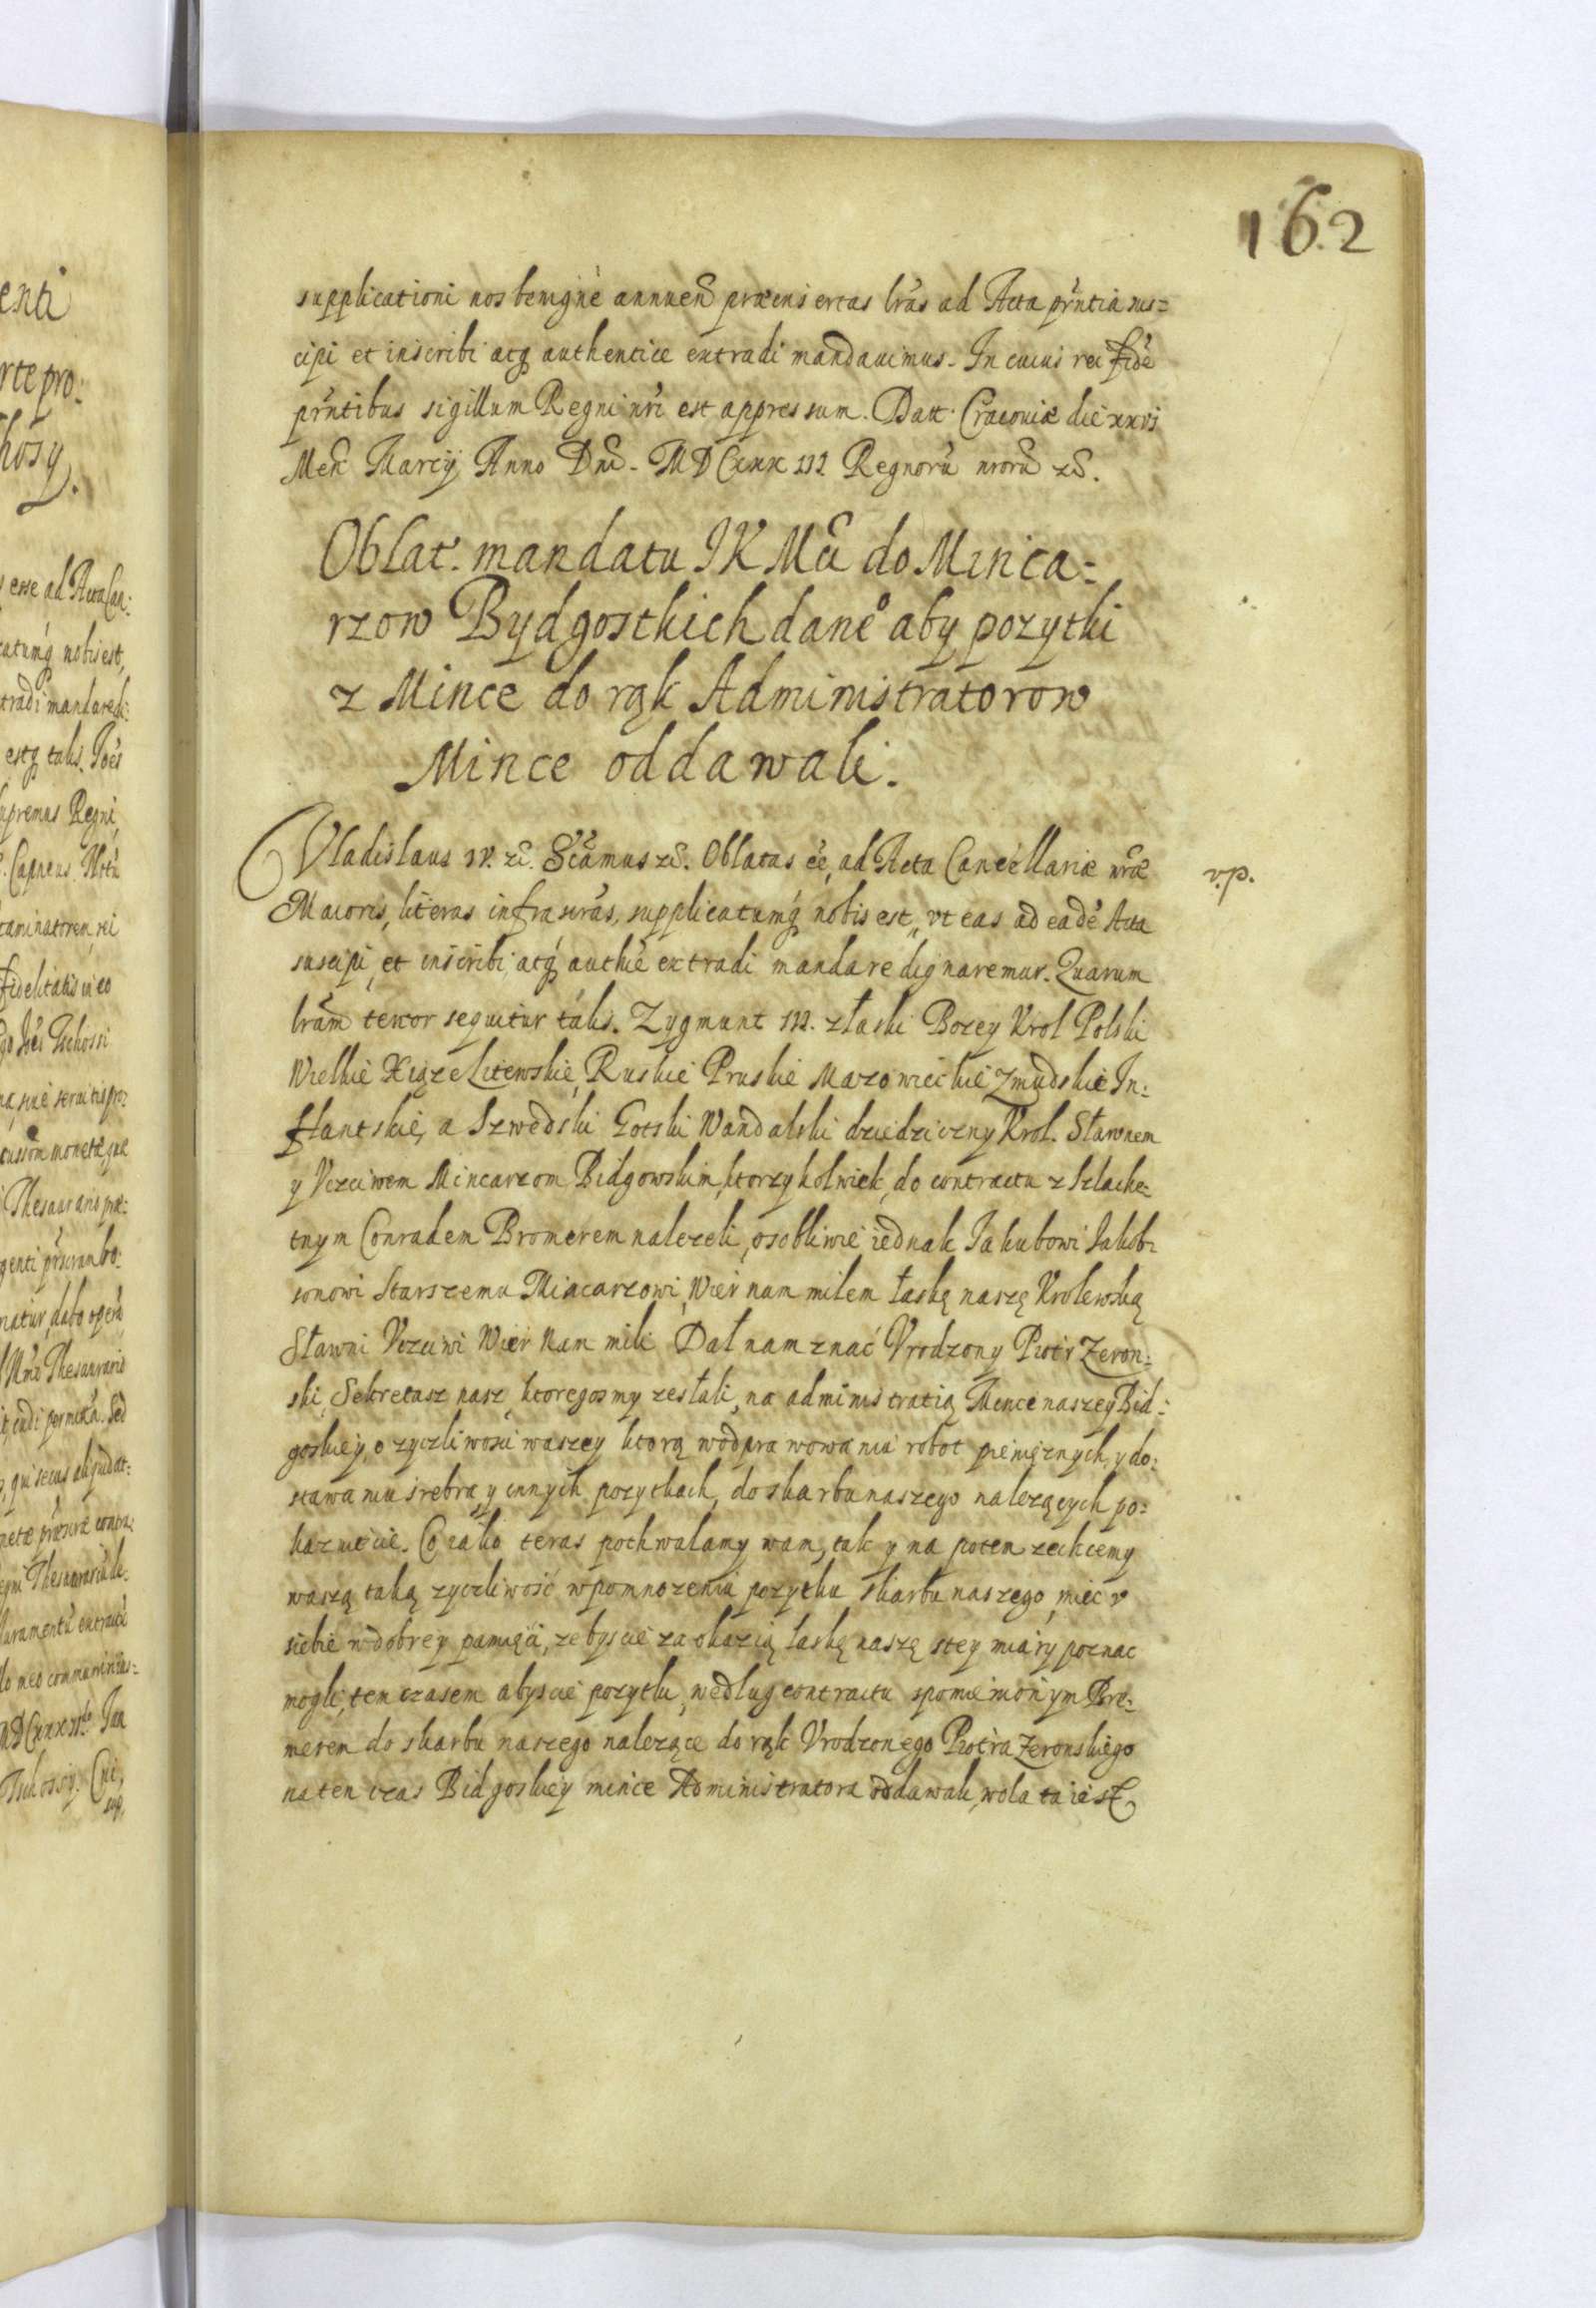 162
supplicationi nos benignè annuen̄ præinsertas lrās ad Acta pr̄ntia sus=
cipi et inscribi atq authentice extradi mandauimus. In cuius rei fidē
pr̄ntibus sigillum Regni nr̄i est appressum. Datt. Cracouiæ die xxvi
Men̄ Marcij Anno Dni̅. MDCxxxIII. Regnorū nrorū zc̄.
Oblat. mandatu JKMći do Minca=
rzow Bydgostkich dane° aby pozytki
z Mince do rąk Administratorow
Mince oddawali.
Vladislaus IV. zc̄. Sc̄āmus zc̄. Oblatas eē, ad Acta Cancellariæ nr̄æ
v.p.
Maioris, literas infrascr̄as, supplicatumq́ nobis est, vt eas ad eadē Acta
suscipi, et inscribi, atq́ authē extradi mandare dignaremur. Quarum
lrām tenor sequitur talis. Zygmunt III. z łaski Bozey Krol Polski
Wielkie Xiąze Litewskie, Ruskie Pruskie Mazowieckie Zmudskie In=
flantskie, a Szwedski Gotski Wandalski dziedziczny Krol. Sławnem
y Vczciwem Mincarzom Bidgowskim, ktorzykolwiek, do contractu z Szlache=
tnym Conradem Bromerem nalezeli, osobliwie iednak Jakubowi Jakob=
sonowi Starszemu Mincarzowi, Wier nam miłem łaskę naszę Krolewską
Sławni Vczciwi Wier Nam mili Dał nam znać Vrodzony Piotr Zeron=
ski, Sekretasz nasz, ktoregosmy zesłali, na administratią Mence naszey Bid=
goskiey, o zyczliwosci waszey ktorą w odprawowaniu robot pienięznych, y do=
stawaniu srebra y innych pozytkach, do skarbu naszego nalezących po=
kazuiecie. Co iako teras pochwalamy wam, tak y na poten zechcemy
waszą taką zyczliwość w pomnozeniu pozytku skarbu naszego, miec v
siebie w dobrey pamięci, ze byscie za okazią łaskę naszę s tey miary poznac
mogli, ten czasem abyscie pozytki, według contractu spomienionym Bro=
merem do skarbu naszego nalezące do rąk Vrodzonego Piotra Zeronskiego
na ten czas Bidgoskiey mince Administratora oddawali, wola ta iest